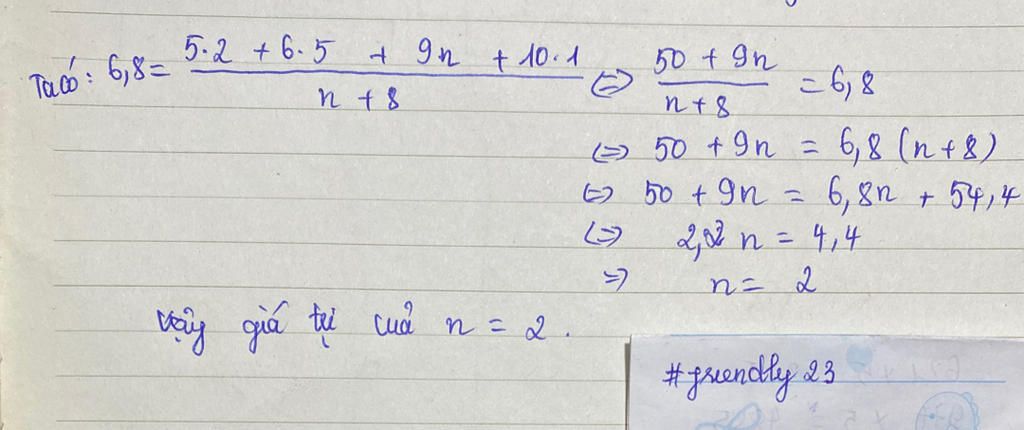 Ta có: 6,8 = (5·2 + 6·5 + 9n + 10·1)/(n + 8) ⇔ (50 + 9n)/(n + 8) = 6,8
⇔ 50 + 9n = 6,8 (n + 8)
⇔ 50 + 9n = 6,8n + 54,4
⇔ 2,2 n = 4,4
⇒ n = 2
Vậy giá trị của n = 2.
#friendly 23